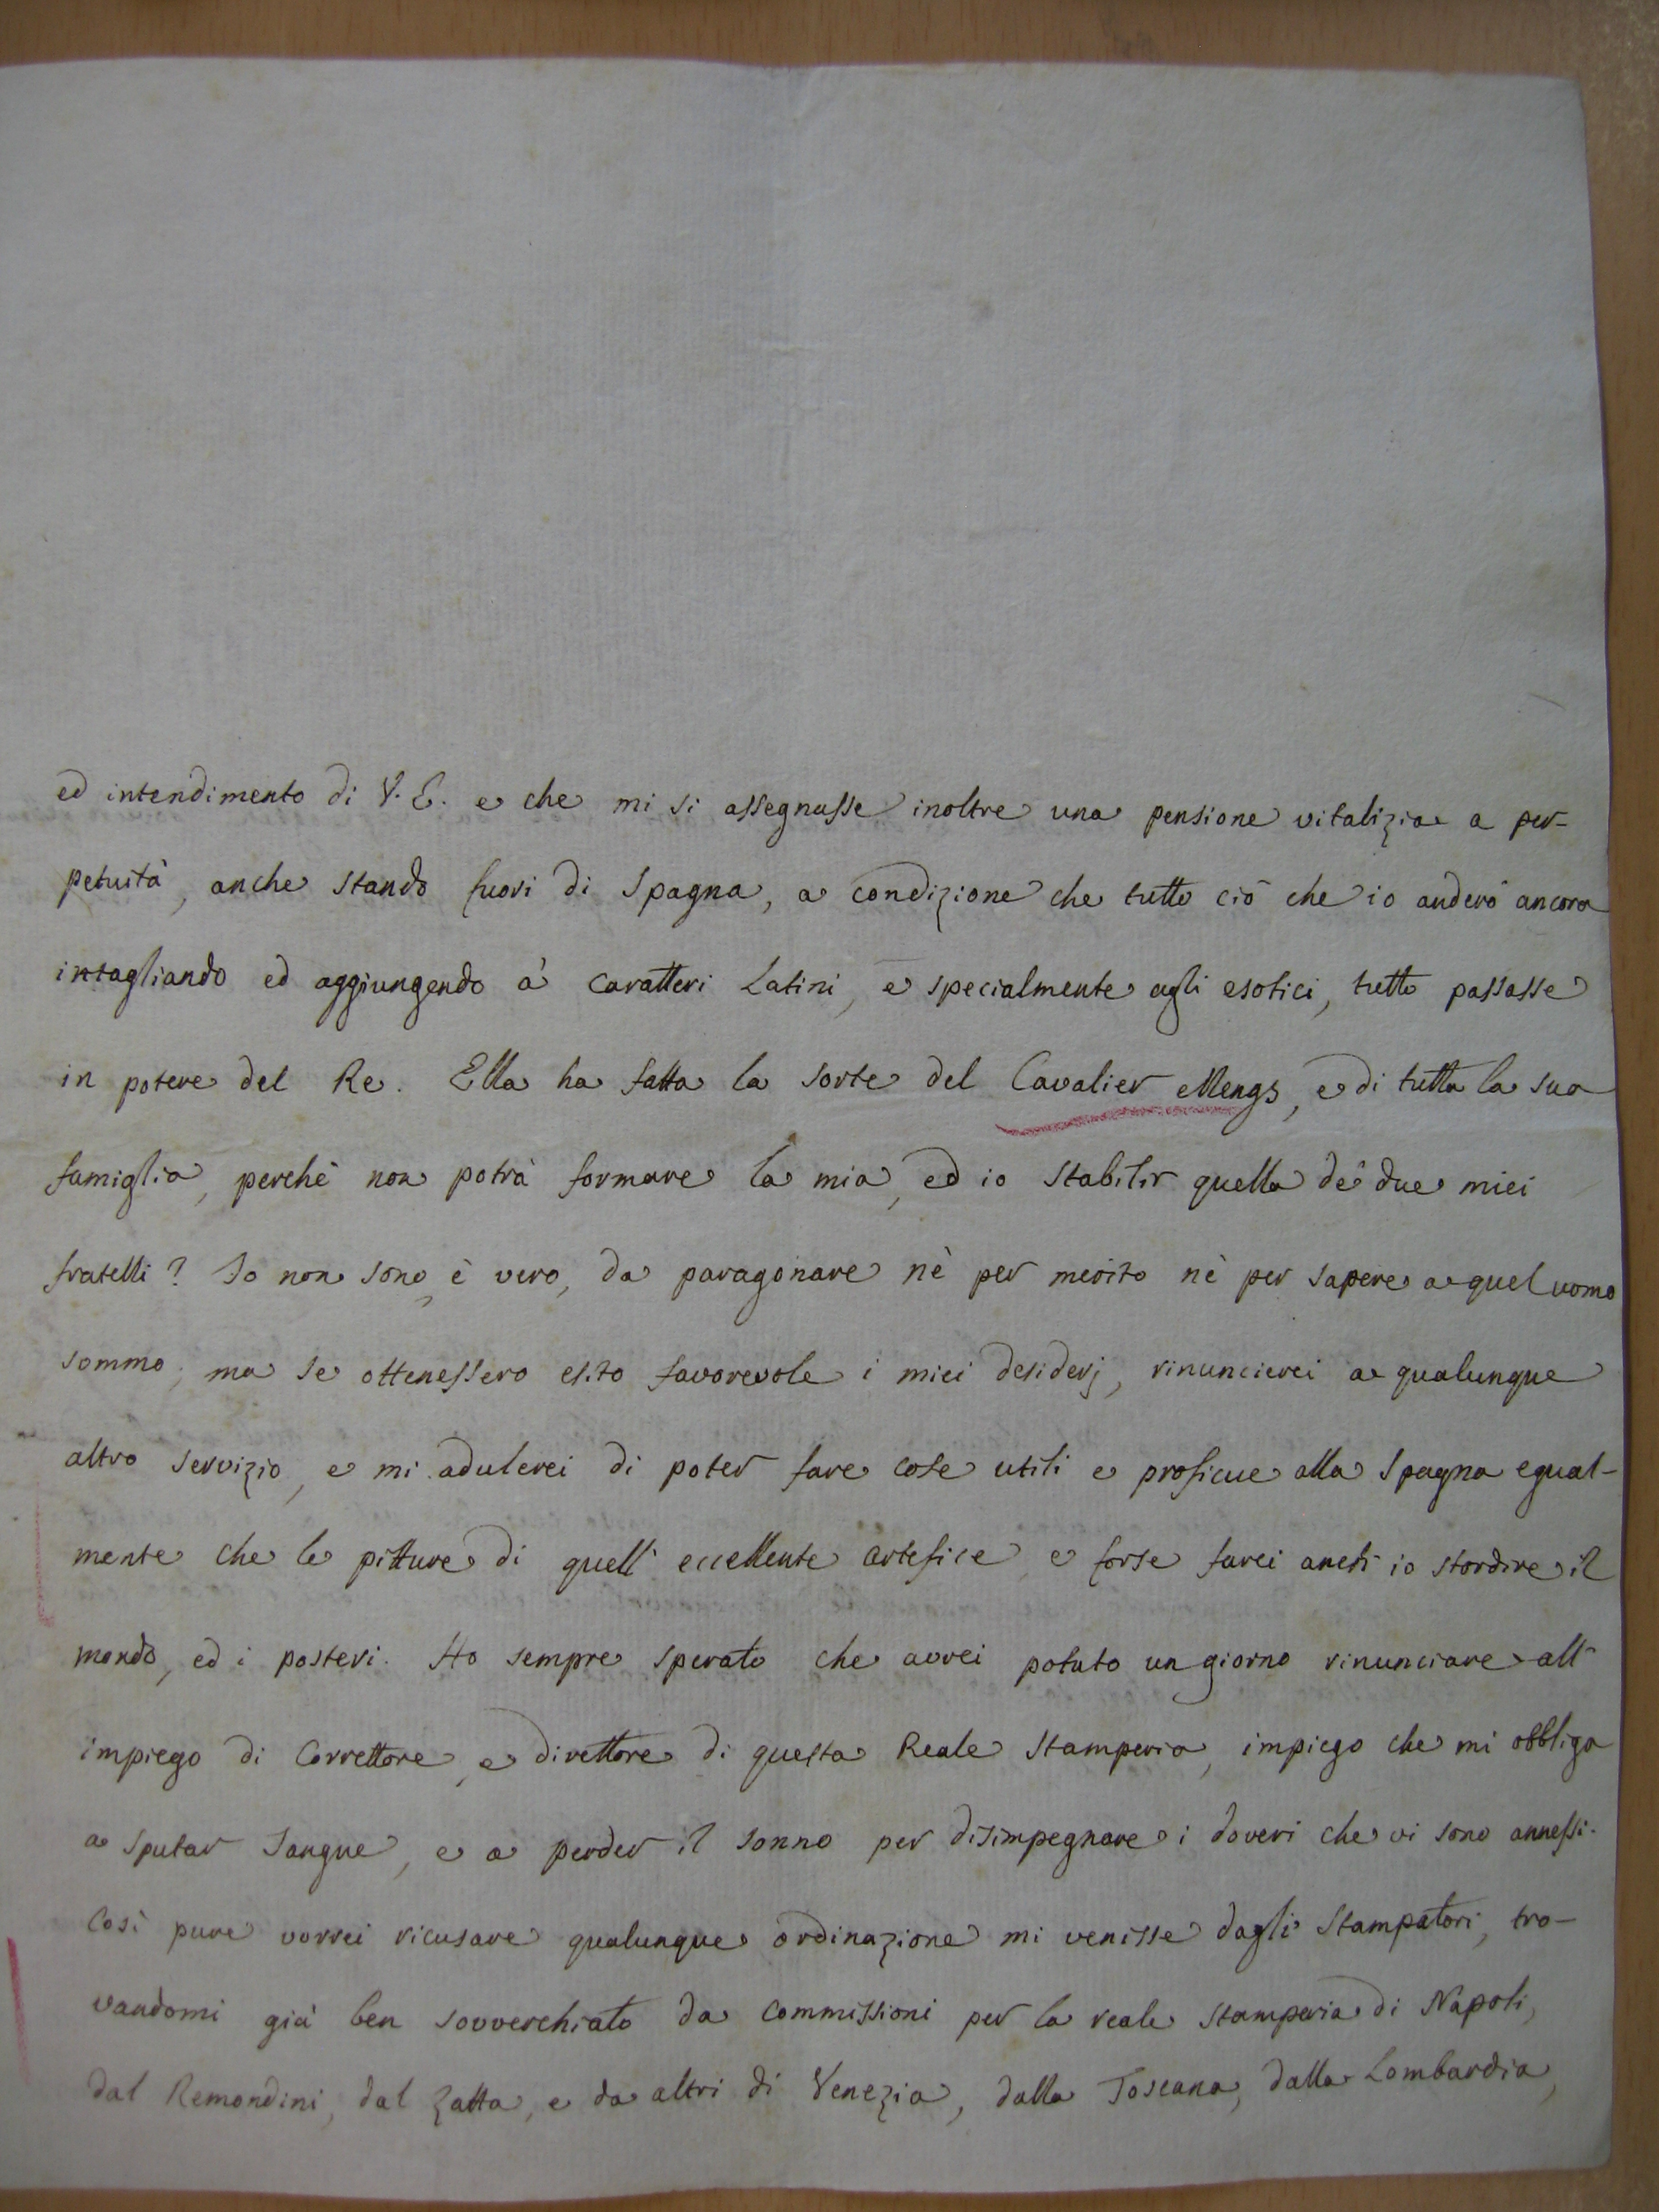 ed intendimento di V. E. e che mi si assegnasse inoltre una pensione vitalizia a per-
petuità, anche stando fuori di Spagna, a condizione che tutto ciò che io anderò ancora
intagliando ed aggiungendo a' caratteri Latini, e specialmente agli esotici, tutto passasse
in potere del Re. Ella ha fatta la sorte del Cavalier Mengs, e di tutta la sua
famiglia, perchè non potrà formare la mia, ed io stabilir quella de' due miei
fratelli? Io non sono, è vero, da paragonare nè per merito nè per sapere a quel uomo
sommo; ma se ottenessero esito favorevole i miei desiderj, rinuncierei a qualunque
altro servizio, e mi adulerei di poter fare cose utili e proficue alla Spagna egual-
mente che le pitture di quell' eccellente artefice, e forse farei anch' io stordire il
mondo, ed i posteri. Ho sempre sperato che avrei potuto un giorno rinunciare all'
impiego di Correttore, e direttore di questa Reale Stamperia, impiego che mi obbliga
a sputar sangue, e a perder il sonno per disimpegnare i doveri che vi sono annessi.
Così pure vorrei ricusare qualunque ordinazione mi venisse dagli Stampatori, tro-
vandomi già ben sovverchiato da commissioni per la reale stamperia di Napoli,
dal Remondini, dal Zatta, e da altri di Venezia, dalla Toscana, dalla Lombardia,